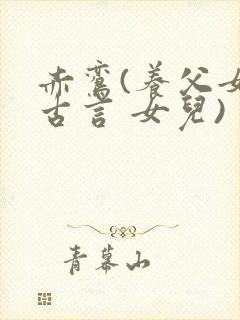 赤鸾(養父女
古言 女兒)
青幕山